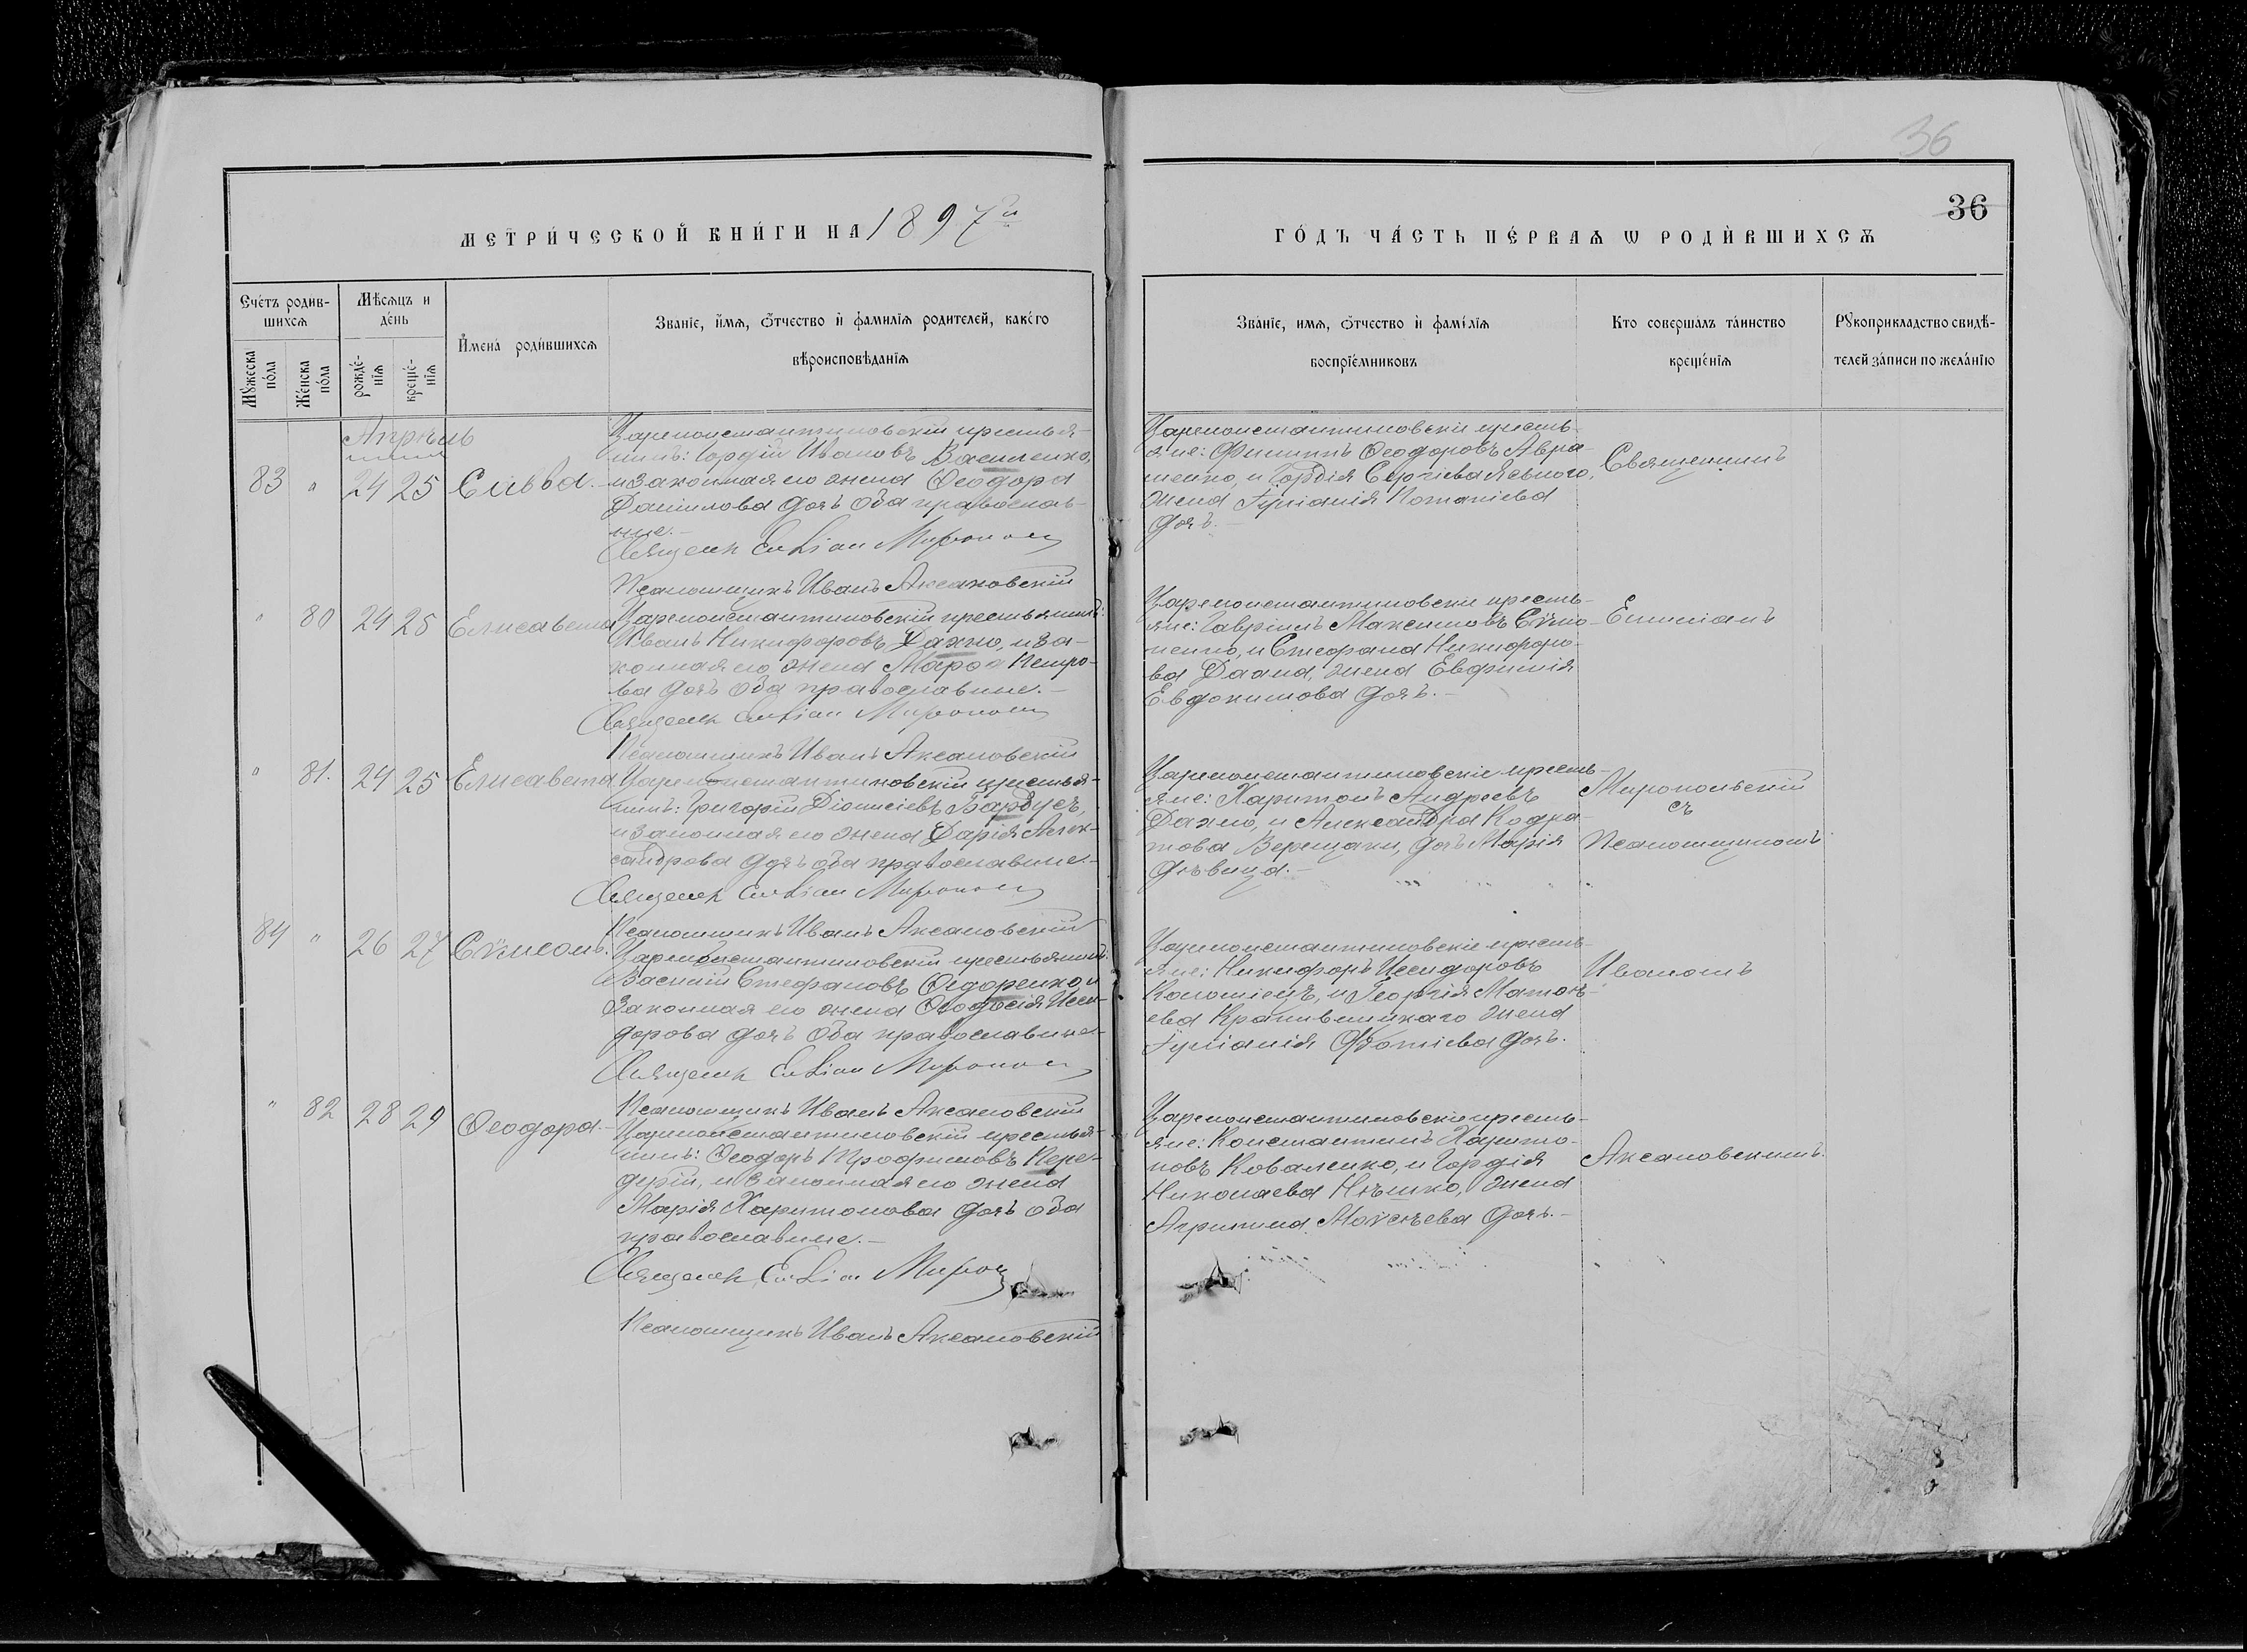 36
36
МЕТРИ́ЧЕСКОЙ КНИ́ГИ НА 1897й
ГО́ДЪ ЧА́СТЬ ПЕ́РВАѦ Ѡ РОДИ́ВШИХСѦ
Счétъ родив-
шихсѧ
Мѣсѧцъ и
де́нь
Мꙋжеска
по́ла
Же́нска
по́ла
рожде́-
нїѧ
креще́-
нїѧ
И҆мена̀ роди́вшихсѧ
Зва́нїе, и҆́мѧ, ѻ҆́тчество и҆ фамилїѧ родителей, како́го
вѣроисповѣ́данїѧ
Зва́нїе, имѧ, ѻ҆́тчество и҆ фамі́лїѧ
воспрїе́мниковъ
Кто соверша́лъ та́инство
креще́нїѧ
Рꙋкоприкладство свидѣ́-
телей за́писи по жела́нїю
Апрѣль
83 " 24 25 Савва.
Цареконстантиновскій крестья-
нинъ: Гордій Ивановъ Василенко,
и законная его жена Ѳеодора
Даніилова дочь оба православ-
ные.-
Священ. Емиліан Миропол
Псаломщикъ Иванъ Аксановскій
Цареконстантиновскіе кресть-
яне: Филиппъ Ѳеодоровъ Авра-
менко, и Гордія Сергіева
жена Іуліанія Потапіева
дочь.-
Священникъ
" 80 24 25 Елисавета
Цареконстантиновскій крестьянинъ:
Иванъ Никифоровъ Дахно, и за-
конная его жена Марѳа Петро-
ва дочь оба православные.-
Священ. Емиліан Миропол
Псаломщикъ Иванъ Аксановскій
Цареконстантиновскіе кресть-
яне: Гавріилъ Максимовъ Сѵмо-
ненко, и Стефана Никифоро-
ва Дахна, жена Евфимія
Евдокимова дочь.-
Емиліанъ
" 81. 24 25 Елисавета
Цареконстантиновскій крестья-
нинъ: Григорій Діонисіевъ Барбусъ,
и законная его жена Дарія Алек-
сандрова дочь оба православные.-
Священ. Емиліан Миропол
Псаломщикъ Иванъ Аксановскій
Цареконстантиновскіе кресть-
яне: Харитонъ Андреевъ
Дахно, и Александра Кодра-
това Верещаки, дочь Марія
дѣвица.-
Миропольскій
съ
Псаломщикомъ
84 " 26 27 Сѵмеонъ.
Цареконстантиновскій крестьянинъ:
Василій Стефановъ Ѳедоренко, и
законная его жена Ѳеодосія Иси-
дорова дочь оба православные.-
Священ. Емиліан Миропол
Псаломщикъ Иванъ Аксановскій
Цареконстантиновскіе кресть-
яне: Никифоръ Исидоровъ
Коломіецъ, и Георгія Матѳѣ-
ева Крапивницкаго жена
Іуліанія Фотіева дочь.
Иваномъ
" 82 28 29 Ѳеодора.-
Цареконстантиновскій крестья-
нинъ: Ѳеодоръ Трофимовъ Пере-
дерій, и законная его жена
Марія Харитонова дочь оба
православные.-
Священ. Емиліан Миропол
Псаломщикъ Иванъ Аксановскій
Цареконстантиновскіе кресть-
яне: Константинъ Харито-
новъ Коваленко, и Гордія
Николаева Нѣшко, жена
Агрипина Моѵсѣева дочь.-
Аксановскимъ.